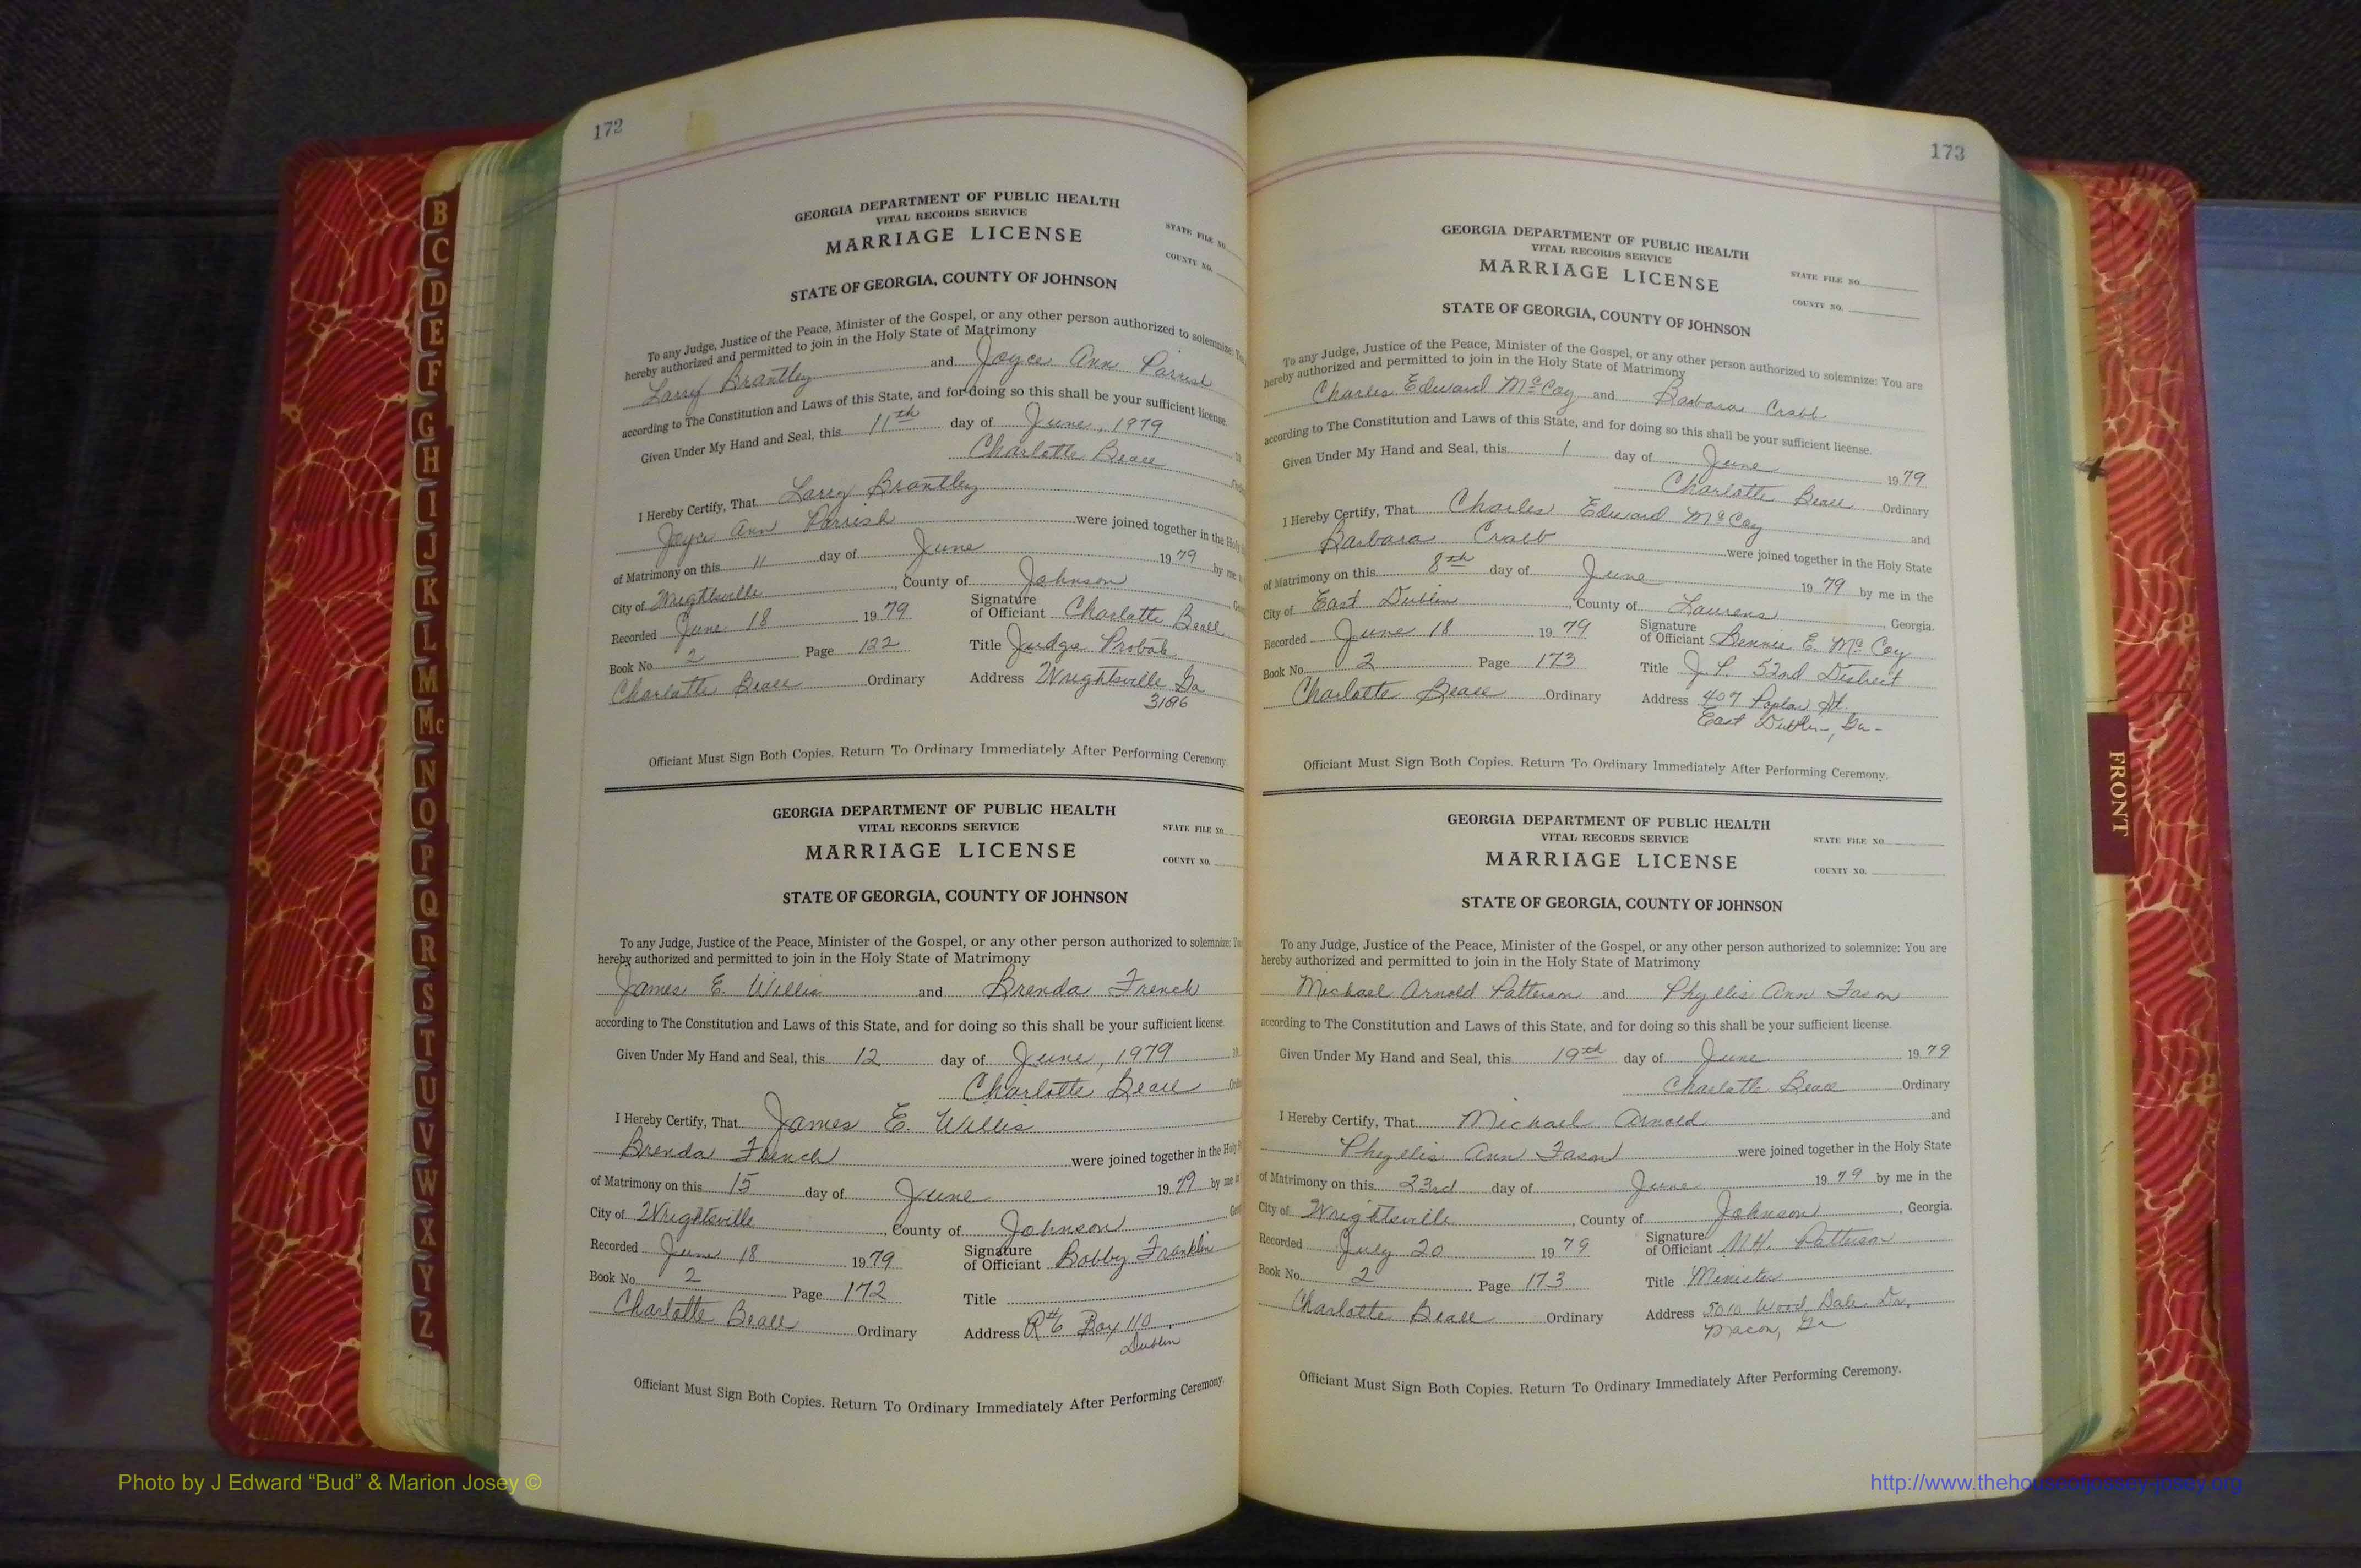 172
GEORGIA DEPARTMENT OF PUBLIC HEALTH
VITAL RECORDS SERVICE
MARRIAGE LICENSE
STATE FILE NO.
COUNTY NO.
STATE OF GEORGIA, COUNTY OF JOHNSON
To any Judge, Justice of the Peace, Minister of the Gospel, or any other person authorized to solemnize: You
hereby authorized and permitted to join in the Holy State of Matrimony
Larry Brantley and Joyce Ann Parrish
according to The Constitution and Laws of this State, and for doing so this shall be your sufficient license.
Given Under My Hand and Seal, this 11th day of June, 1979
Charlotte Beall
I Hereby Certify, That Larry Brantley
Joyce Ann Parrish were joined together in the Holy
of Matrimony on this 11 day of June 1979 by me
City of Wrightsville, County of Johnson
Recorded June 18 1979 Signature of Officiant Charlotte Beall
Book No. 2 Page 122 Title Judge Probate
Charlotte Beall Ordinary Address Wrightsville Ga
31096
Officiant Must Sign Both Copies. Return To Ordinary Immediately After Performing Ceremony.
GEORGIA DEPARTMENT OF PUBLIC HEALTH
VITAL RECORDS SERVICE
MARRIAGE LICENSE
STATE FILE NO.
COUNTY NO.
STATE OF GEORGIA, COUNTY OF JOHNSON
To any Judge, Justice of the Peace, Minister of the Gospel, or any other person authorized to solemnize: You
hereby authorized and permitted to join in the Holy State of Matrimony
James E. Willis and Brenda French
according to The Constitution and Laws of this State, and for doing so this shall be your sufficient license.
Given Under My Hand and Seal, this 12 day of June, 1979
Charlotte Beall
I Hereby Certify, That James E. Willis
Brenda French were joined together in the Holy
of Matrimony on this 15 day of June 1979 by me
City of Wrightsville, County of Johnson
Recorded June 18 1979 Signature of Officiant Bobby Franklin
Book No. 2 Page 172 Title
Charlotte Beall Ordinary Address R#6 Box 110
Dublin
Officiant Must Sign Both Copies. Return To Ordinary Immediately After Performing Ceremony.
173
GEORGIA DEPARTMENT OF PUBLIC HEALTH
VITAL RECORDS SERVICE
MARRIAGE LICENSE
STATE FILE NO.
COUNTY NO.
STATE OF GEORGIA, COUNTY OF JOHNSON
To any Judge, Justice of the Peace, Minister of the Gospel, or any other person authorized to solemnize: You are
hereby authorized and permitted to join in the Holy State of Matrimony
Charles Edward McCoy and Barbara Crabb
according to The Constitution and Laws of this State, and for doing so this shall be your sufficient license.
Given Under My Hand and Seal, this 1 day of June 1979
Charlotte Beall Ordinary
I Hereby Certify, That Charles Edward McCoy and
Barbara Crabb were joined together in the Holy State
of Matrimony on this 8th day of June 1979 by me in the
City of East Dublin, County of Laurens, Georgia.
Recorded June 18 1979 Signature of Officiant Bennie E. McCoy
Book No. 2 Page 173 Title J. P. 52nd District
Charlotte Beall Ordinary Address 407 Poplar St.
East Dublin, Ga-
Officiant Must Sign Both Copies. Return To Ordinary Immediately After Performing Ceremony.
GEORGIA DEPARTMENT OF PUBLIC HEALTH
VITAL RECORDS SERVICE
MARRIAGE LICENSE
STATE FILE NO.
COUNTY NO.
STATE OF GEORGIA, COUNTY OF JOHNSON
To any Judge, Justice of the Peace, Minister of the Gospel, or any other person authorized to solemnize: You are
hereby authorized and permitted to join in the Holy State of Matrimony
Michael Arnold Patterson and Phyllis Ann Fason
according to The Constitution and Laws of this State, and for doing so this shall be your sufficient license.
Given Under My Hand and Seal, this 19th day of June 1979
Charlotte Beall Ordinary
I Hereby Certify, That Michael Arnold and
Phyllis Ann Fason were joined together in the Holy State
of Matrimony on this 23rd day of June 1979 by me in the
City of Wrightsville, County of Johnson, Georgia.
Recorded July 20 1979 Signature of Officiant M.H. Patterson
Book No. 2 Page 173 Title Minister
Charlotte Beall Ordinary Address 5010 Wood Dale Dr,
Macon, Ga
Officiant Must Sign Both Copies. Return To Ordinary Immediately After Performing Ceremony.
B
C
D
E
F
G
H
I
J
K
L
M
Mc
N
O
P
Q
R
S
T
U
V
W
X
Y
Z
FRONT
Photo by J Edward “Bud” & Marion Josey ©
http://www.thehouseofjossey-josey.org